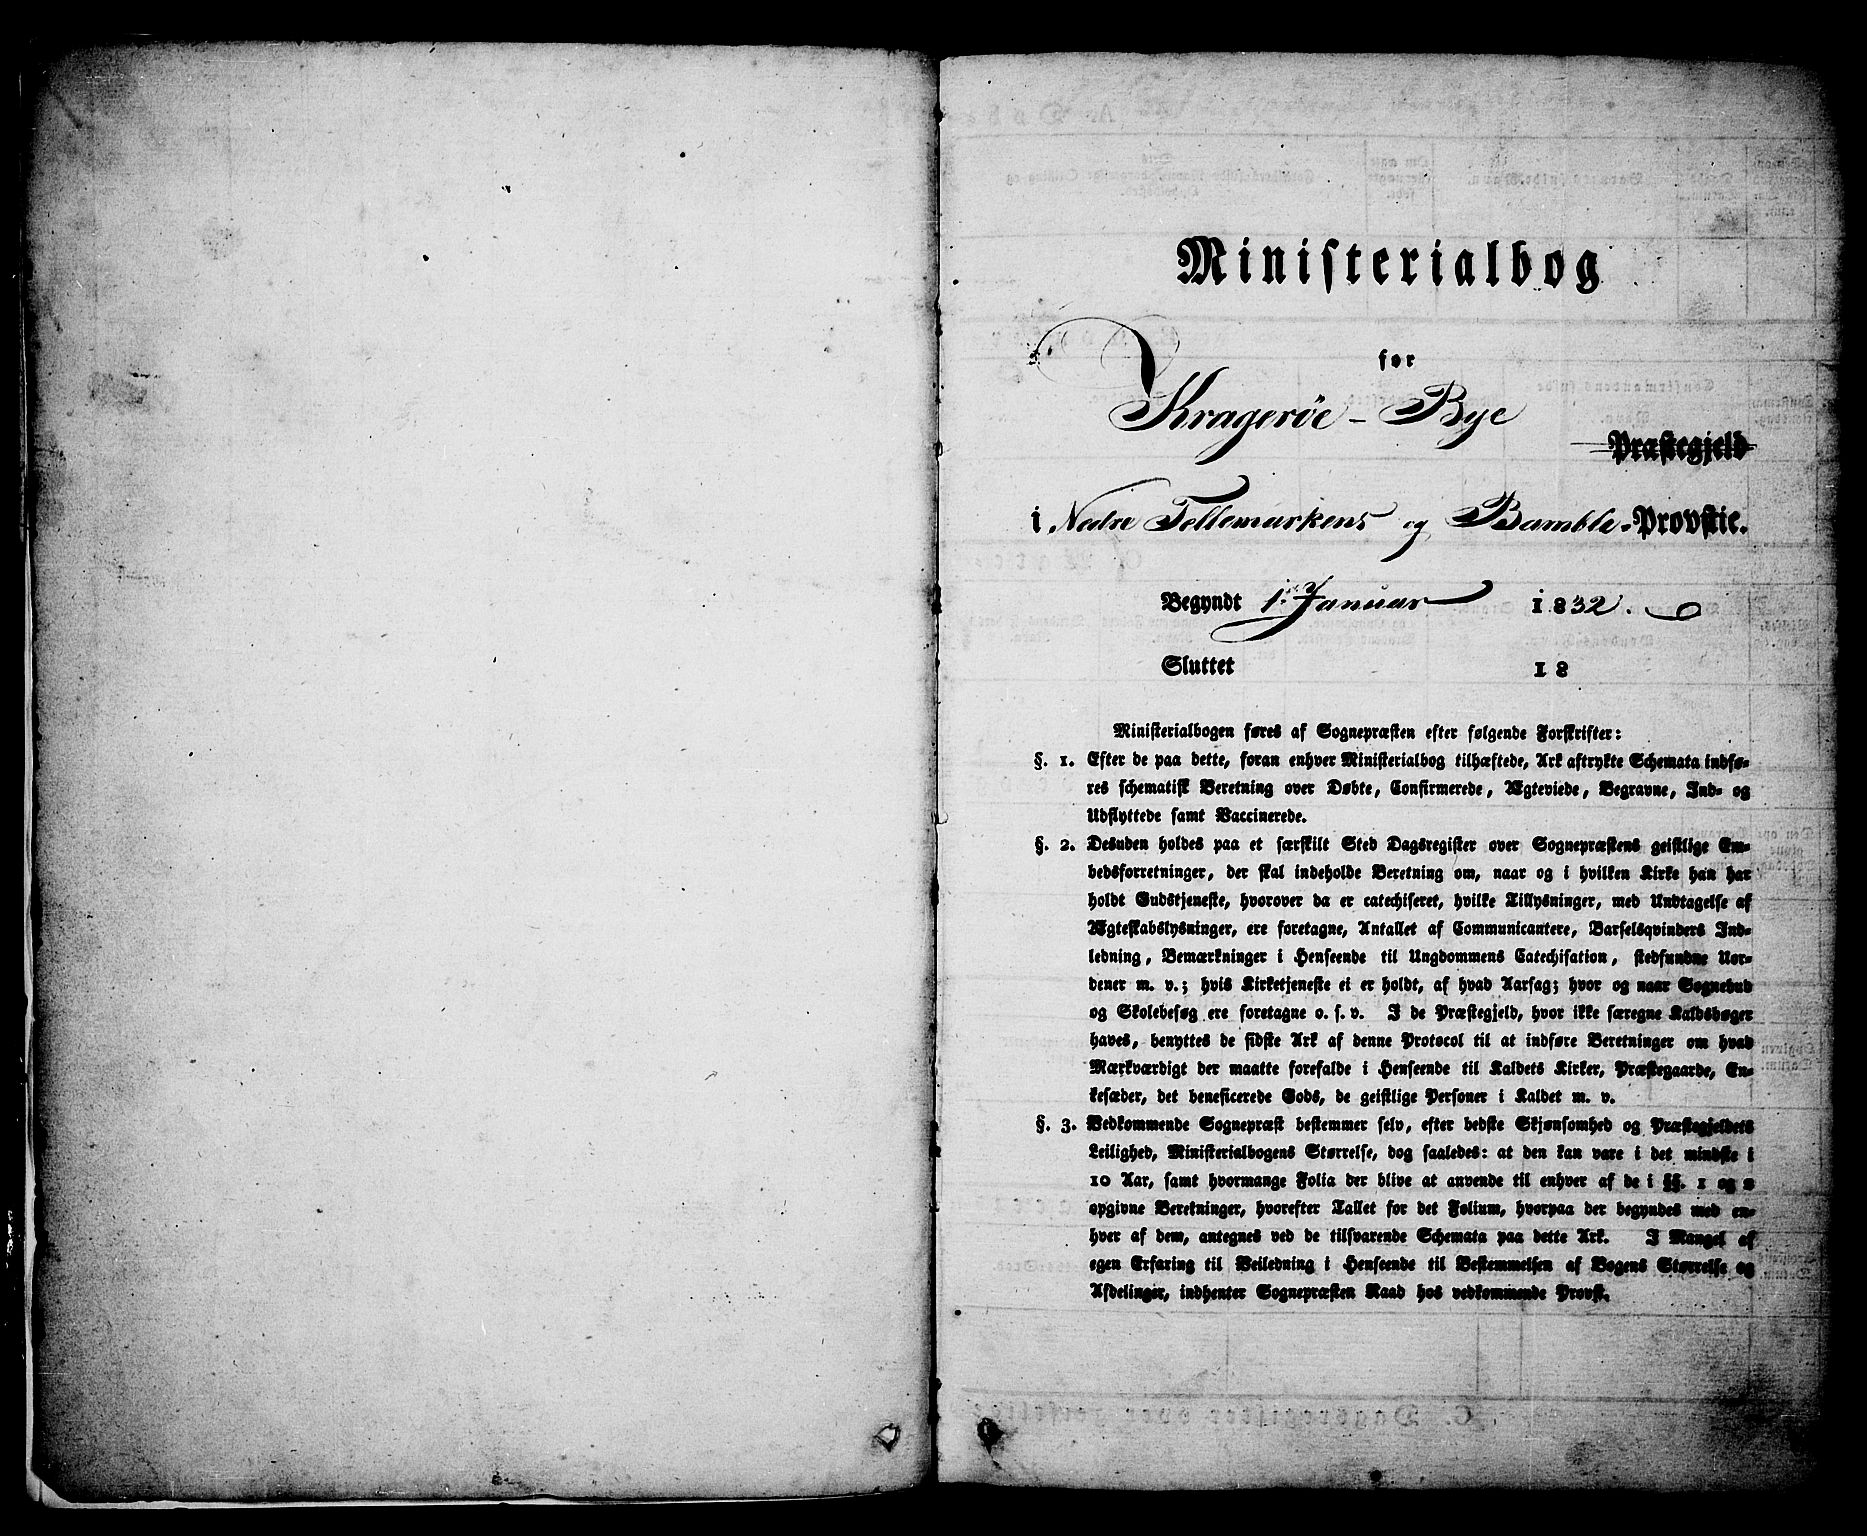 Ministerialbog
for
Kragerøe-Bye
Præstegjeld
i Nedre Tellemarkens og Bamble-Provstie.
Begyndt 1ste Januar 1832.
Sluttet 18
Ministerialbogen føres af Sognepræsten efter følgende Forskrifter:
§. 1. Efter de paa dette, foran enhver Ministerialbog tilhæftede, Ark aftrykte Schemata indfø-
res schematisk Beretning over Døbte, Confirmerede, Ægteviede, Begravne, Ind- og
Udflyttede samt Vaccinerede.
§. 2. Desuden holdes paa et særskilt Sted Dagsregister over Sognepræstens geistlige Em-
bedsforretninger, der skal indeholde Beretning om, naar og i hvilken Kirke han har
holdt Gudstjeneste, hvorover da er catechiseret, hvilke Tillysninger, med Undtagelse af
Ægteskabslysninger, ere foretagne, Antallet af Communicantere, Barselsqvinders Ind-
ledning, Bemærkninger i Henseende til Ungdommens Catechisation, stedfundne Uor-
dener m. v.; hvis Kirketjeneste ei er holdt, af hvad Aarsag; hvor og naar Sognebud
og Skolebesøg ere foretagne o. s. v. I de Præstegjeld, hvor ikke særegne Kaldsbøger
haves, benyttes de sidste Ark af denne Protocol til at indføre Beretninger om hvad
Mærkværdigt der maatte forefalde i Henseende til Kaldets Kirker, Præstegaarde, En-
kesæder, det beneficerede Gods, de geistlige Personer i Kaldet m. v.
§. 3. Vedkommende Sognepræst bestemmer selv, efter bedste Skjønsomhed og Præstegjeldets
Leilighed, Ministerialbogens Størrelse, dog saaledes: at den kan vare i det mindste i
10 Aar, samt hvormange Folia der blive at anvende til enhver af de i §§. 1 og 2
opgivne Beretninger, hvorefter Tallet for det Folium, hvorpaa der begyndes med en-
hver af dem, antegnes ved de tilsvarende Schemata paa dette Ark. I Mangel af
egen Erfaring til Veiledning i Henseende til Bestemmelsen af Bogens Størrelse og
Afdelinger, indhenter Sognepræsten Raad hos vedkommende Provst.